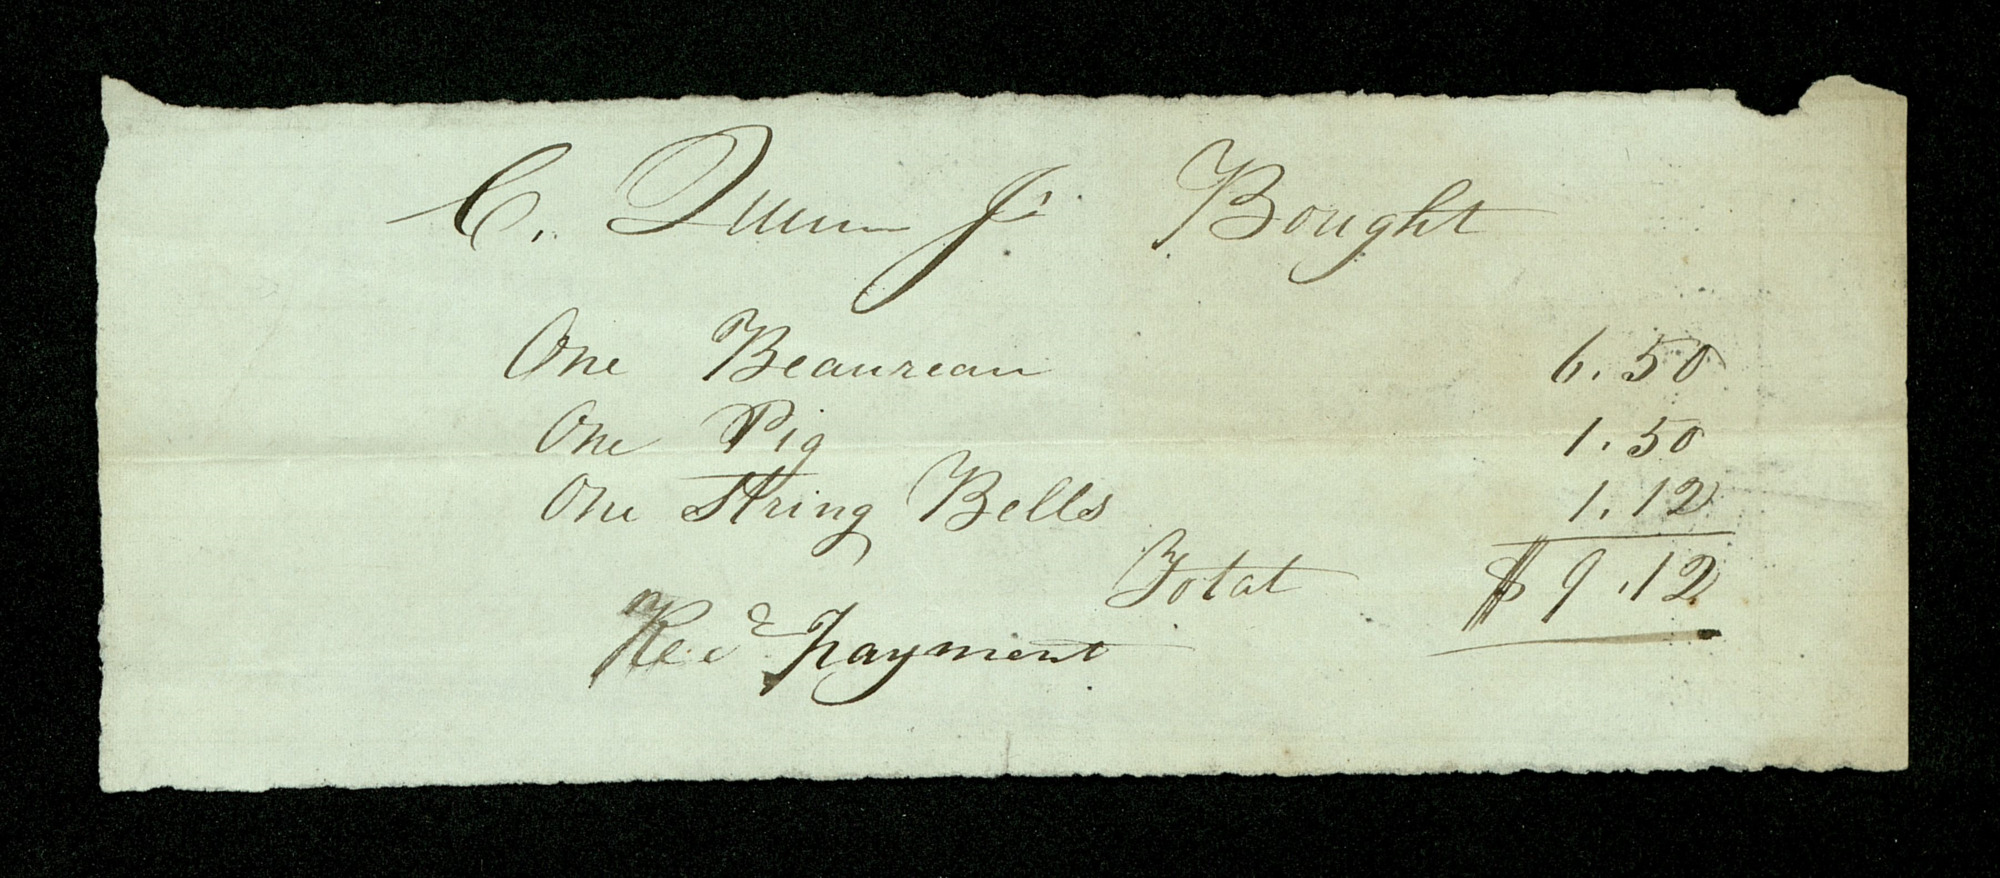 C. Quinn Jr Bought
One Beaureau 6.50
One Pig 1.50
One String Bells 1.12
Total $9.12
Recd payment